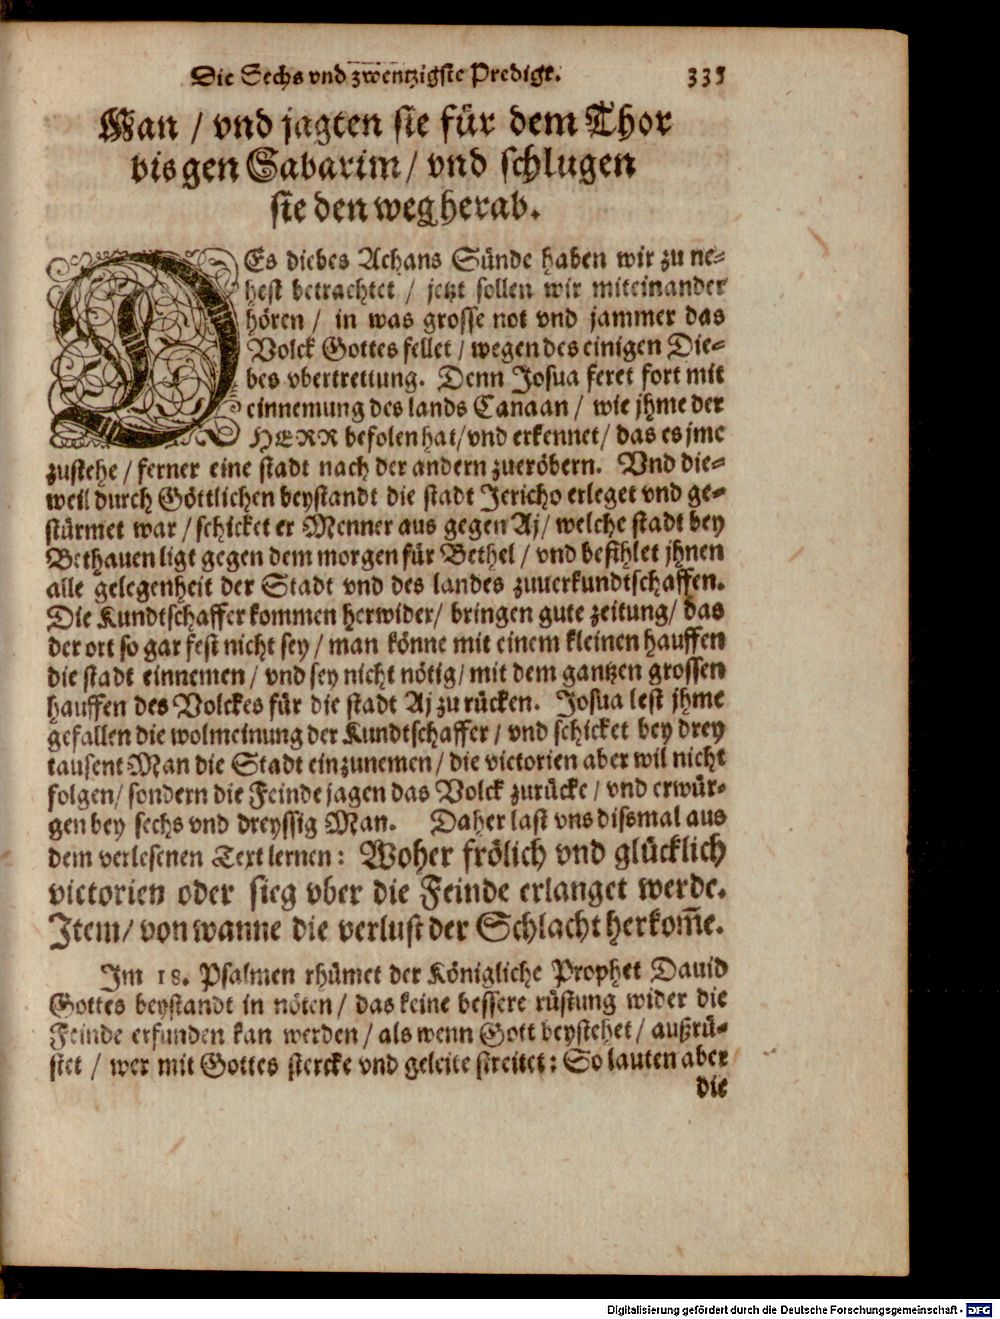 Die Sechs vnd zwentzigste Predigt. 335
Man / vnd jagten sie für dem Thor
bis gen Sabarim / vnd schlugen
sie den weg herab.
DEs diebes Achans Sünde haben wir zu ne-
hest betrachtet / jetzt sollen wir miteinander
hören / in was grosse not vnd jammer das
Volck Gottes fellet / wegen des einigen Die-
bes vbertrettung. Denn Josua feret fort mit
einnemung des lands Canaan / wie jhme der
HERR befolen hat / vnd erkennet / das es jme
zustehe / ferner eine stadt nach der andern zueröbern. Vnd die-
weil durch Göttlichen beystandt die stadt Jericho erleget vnd ge-
stürmet war / schicket er Menner aus gegen Aj / welche stadt bey
Bethauen ligt gegen dem morgen für Bethel / vnd befihlet jhnen
alle gelegenheit der Stadt vnd des landes zuuerkundtschaffen.
Die Kundtschaffer kommen herwider / bringen gute zeitung / das
der ort so gar fest nicht sey / man könne mit einem kleinen hauffen
die stadt einnemen / vnd sey nicht nötig / mit dem gantzen grossen
hauffen des Volckes für die stadt Aj zu rücken. Josua lest jhme
gefallen die wolmeinung der Kundtschaffer / vnd schicket bey drey
tausent Man die Stadt einzunemen / die victorien aber wil nicht
folgen / sondern die Feinde jagen das Volck zurücke / vnd erwür-
gen bey sechs vnd dreyssig Man. Daher last vns dißmal aus
dem verlesenen Text lernen: Woher frölich vnd glücklich
victorien oder sieg vber die Feinde erlanget werde.
Item / von wanne die verlust der Schlacht herkom̃e.
Im 18. Psalmen rhümet der Königliche Prophet Dauid
Gottes beystandt in nöten / das keine bessere rüstung wider die
Feinde erfunden kan werden / als wenn Gott beystehet / außrü-
stet / wer mit Gottes stercke vnd geleite streitet: So lauten aber
die
Digitalisierung gefördert durch die Deutsche Forschungsgemeinschaft - DFG